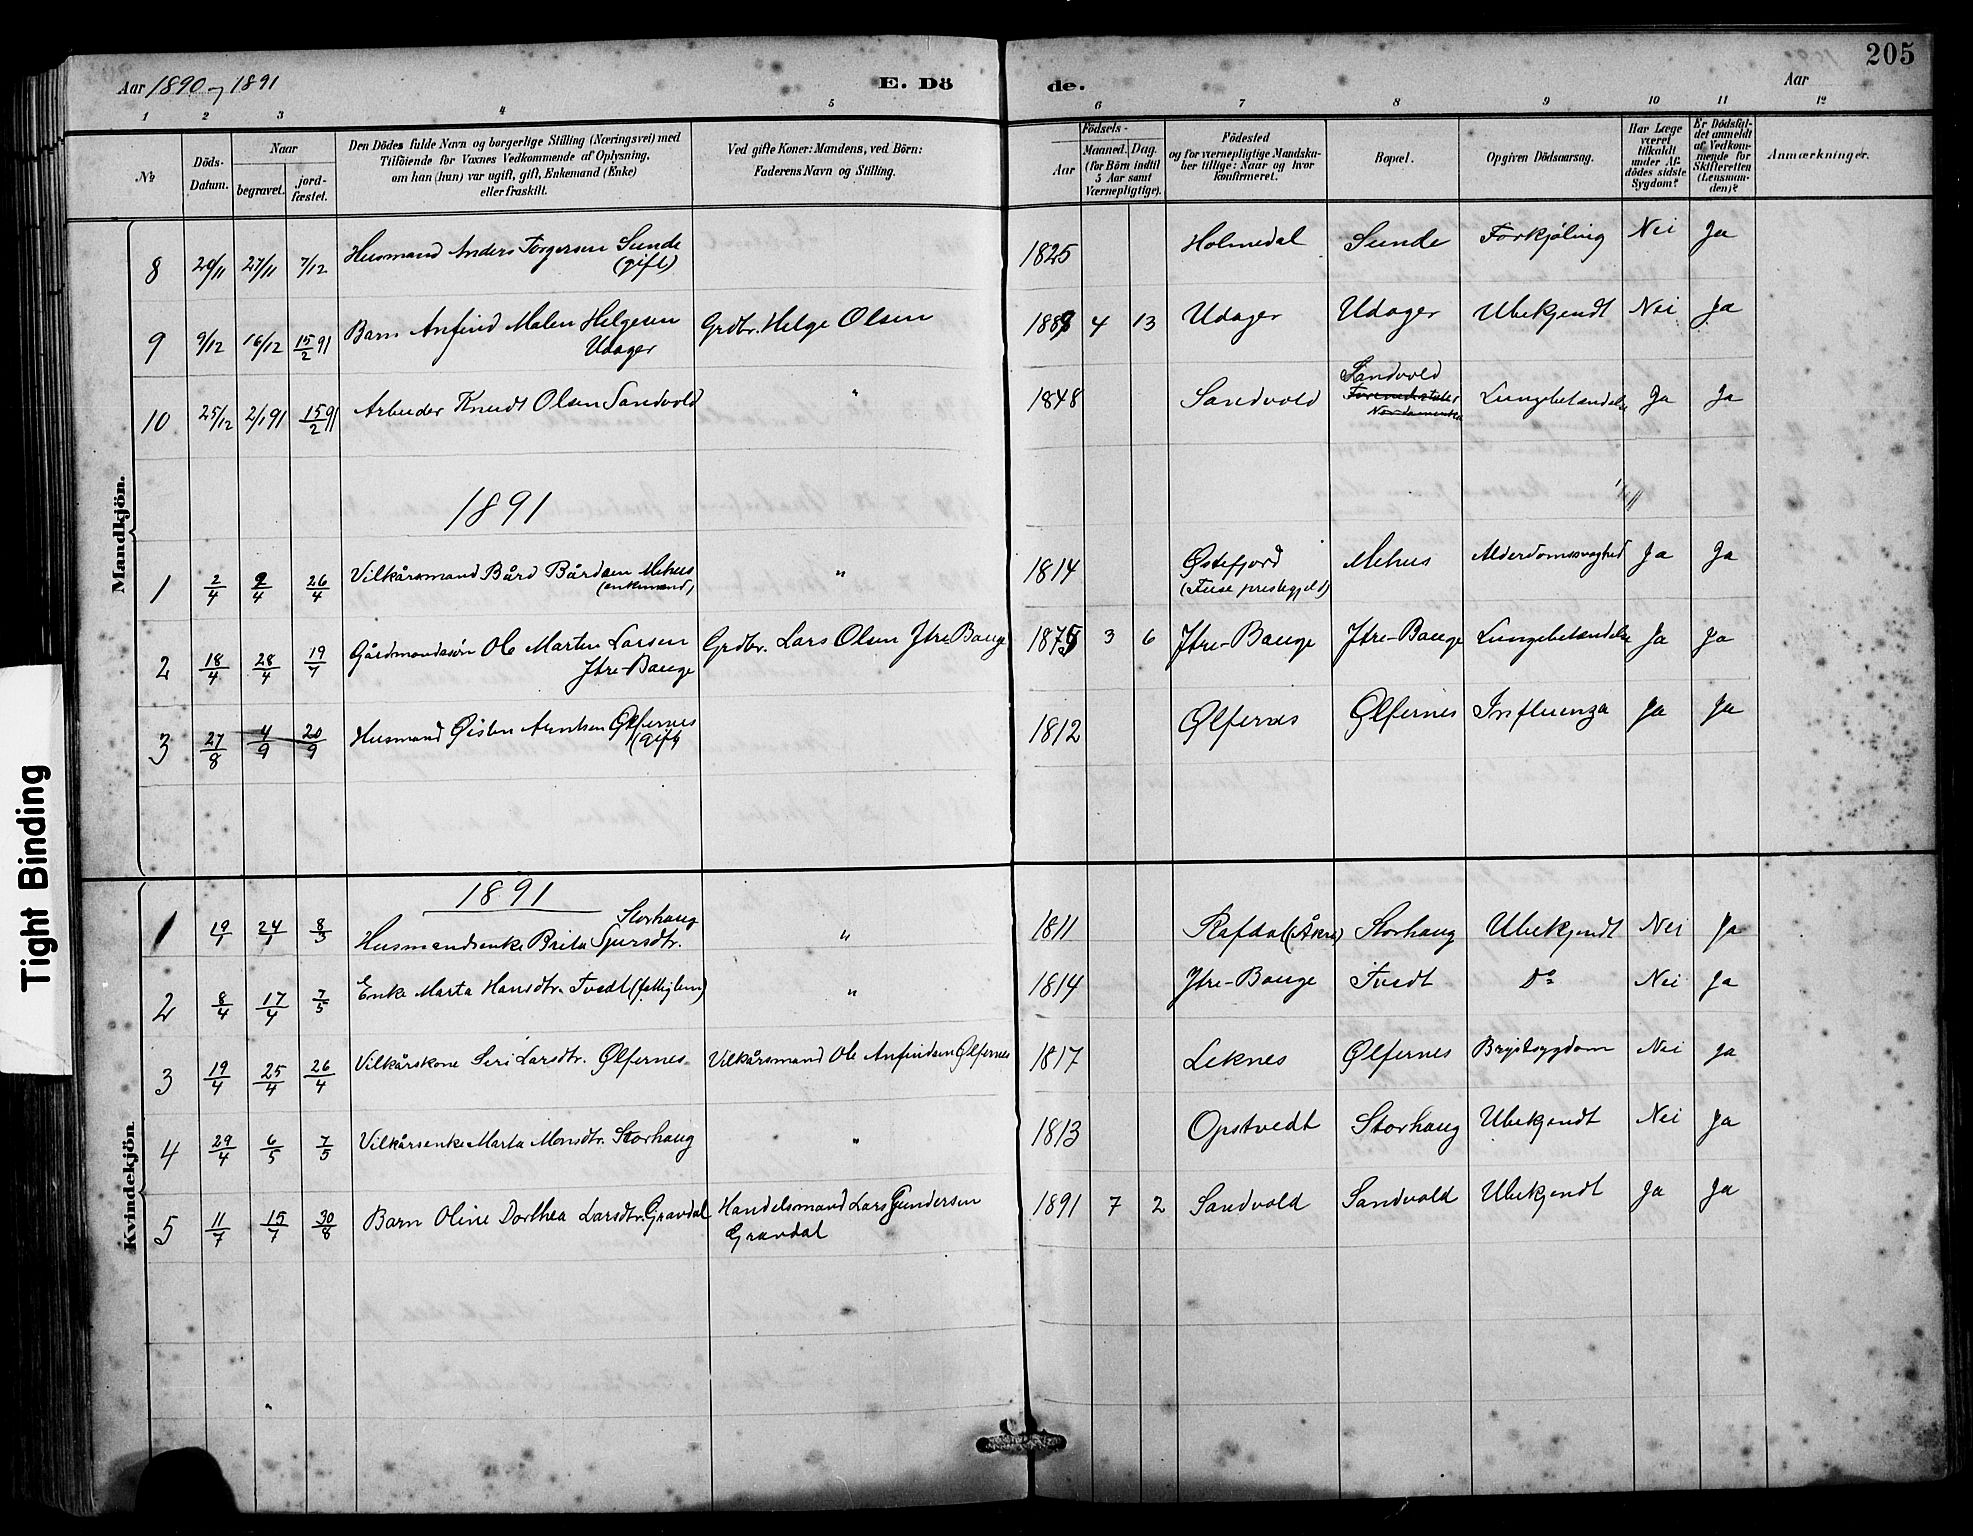 205
Aar 1890 og 1891 E. Dö de. Aar
1 2 3 4 5 6 7 8 9 10 11 12
No
Döds-Datum.
Naar
begravet.
jord-fæstet.
Den Dödes fulde Navn og borgerlige Stilling (Næringsvei) med
Tilföiende for Voxnes Vedkommende af Oplysning,
om han (hun) var ugift, gift, Enkemand (Enke)
eller fraskilt.
Ved gifte Koner: Mandens, ved Börn:
Faderens Navn og Stilling.
Födsels-
Aar
Maaned. Dag.
(for Börn indtil
5 Aar samt
Værnepligtige).
Födested
og for værnepligtige Mandska-
ber tillige: Naar og hvor
konfirmeret.
Bopæl.
Opgiven Dödsaarsag.
Har Læge
været
tilkaldt
under Af-
dödes sidste
Sygdom?
Er Dödsfal-
det anmeldt
af Vedkom-
mende for
Skifteretten
(Lensman-
den)?
Anmærkninger.
Mandkjön.
8 20/11 27/11 7/12 Husmand Anders Torgersen Sunde (gift) 1825 Holmedal Sunde Forkjøling Nei Ja
9 9/12 16/12 15/2 91 Barn Anfind Malen Helgesen Udager Grdbr. Helge Olsen 1889 4 13 Udager Udager Ubekjendt Nei Ja
10 25/12 2/1 91 15/2 91 Arbeider Knudt Olsen Sandvold " 1848 Sandvold Sandvold Lungebetændelse Ja Ja
1891
1 2/4 9/4 26/4 Vilkårsmand Bård Bårdsen Mehus (enkemand) " 1814 Østefjord (Fuse prestegjeld) Mehus Alderdomssvaghed Ja Ja
2 18/4 28/4 19/7 Gårdmandssøn Ole Martin Larsen Ytre-Bauge Grdbr. Lars Olsen Ytre Bauge 1875 3 6 Ytre-Bauge Ytre-Bauge Lungebetændelse Ja Ja
3 27/8 4/9 20/9 Husmand Øisten Arntsen Ølfernes (gift) 1812 Ølfernes Ølfernes Influenza Ja Ja
Kvindekjön.
1891
1 19/1 24/1 8/3 Husmandsenke Brita Sjursdtr. Storhaug " 1811 Rafdal (Åkre) Storhaug Ubekjendt Nei Ja
2 8/4 17/4 7/5 Enke Marta Hansdtr. Tvedt (fattiglem) " 1814 Ytre-Bauge Tvedt Do Nei Ja
3 19/4 25/4 26/4 Vilkårskone Seri Larsdtr. Ølfernes Vilkårsmand Ole Anfindsen Ølfernes 1817 Leknes Ølfernes Brystsygdom Nei Ja
4 29/4 6/5 7/5 Vilkårsenke Marta Monsdtr. Storhaug " 1813 Opstvedt Storhaug Ubekjendt Nei Ja
5 11/7 15/7 30/8 Barn Oline Dorthea Larsdtr. Gravdal Handelsmand Lars Gundersen Gravdal 1891 7 2 Sandvold Sandvold Ubekjendt Ja Ja
Tight Binding